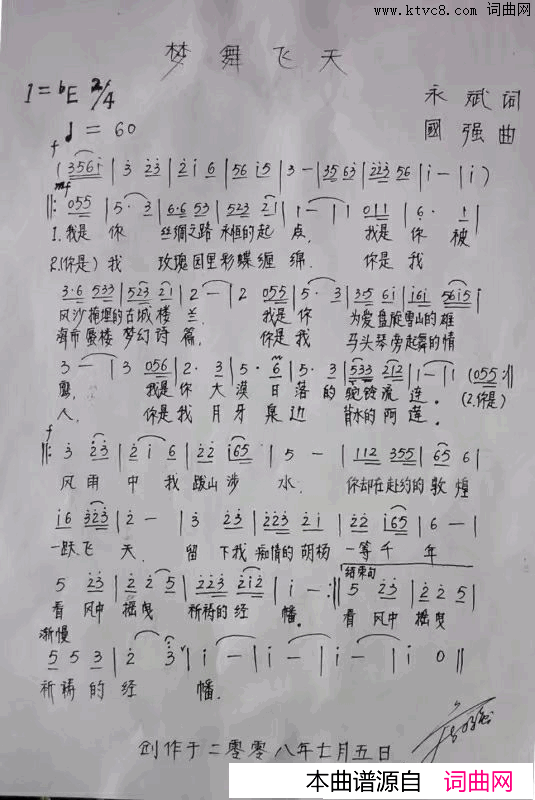 www.ktvc8.com 词曲网
梦舞飞天
1=bE 2/4
永斌词
♩=60
國强曲
f
(3561̇ | 3̇ 2̇3̇ | 2̇1̇ 6 | 56 1̇5 | 3 - | 35 63 | 2̇2̇3̇ 56 | 1̇ - | 1̇ )
mf
‖: 055 | 5· 3 | 6·6 53 | 523 2̇1̇ | 1 - | 1 011 | 6· 1 |
1.我是 你 丝绸之路 永恒的起 点, 我是 你 被
2.(你是) 我 玫瑰园里彩蝶缠 绵. 你是 我
3·6 533 | 523 21 | 2 - | 2 055 | 5· 3 | 35 61̇ | 1̇61̇ 561̇5 |
风沙掩埋的古城楼 兰. 我是你 为爱盘旋雪山的雄
海市蜃楼 梦幻诗篇, 你是 我 马头琴旁起舞的情
3 - | 3 056 | 2· 3 | 5· 6 | 5· 3 | 533 212 | 1 - | 1 (055 :‖
鹰, 我是你 大漠 日落的驼铃流 连。 (2.你是)
人, 你是我 月牙 泉边 背水的 阿 莲。
f
‖: 3̇ 2̇3̇ | 2̇ 1̇ 6 | 2̇2̇ 1̇65 | 5 - | 112 355 | 65 6 |
风雨 中 我 跋山涉 水. 你却在赴约的敦煌
1̇6 3̇2̇3̇ | 2̇ - | 3̇ 2̇3̇ | 2̇2̇3̇ 2̇1̇ | 2̇2̇ 1̇65 | 6 - |
一跃飞 天. 留 下我 痴情的胡杨 一等千 年
结束句
5 2̇3̇ | 2̇2̇ 5 | 2̇2̇3̇ 2̇1̇2̇ | 1̇ - :‖ 5 2̇3̇ | 2̇2̇ 5 |
看 风中 摇曳 祈祷的经 幡。 看 风中 摇曳
渐慢
5 5 3 | 2̇ 3̇ | 1̇ - | 1̇ - | 1̇ - | 1̇ 0 ‖
祈祷的经 幡.
创作于二零零八年七月五日
本曲谱源自 词曲网